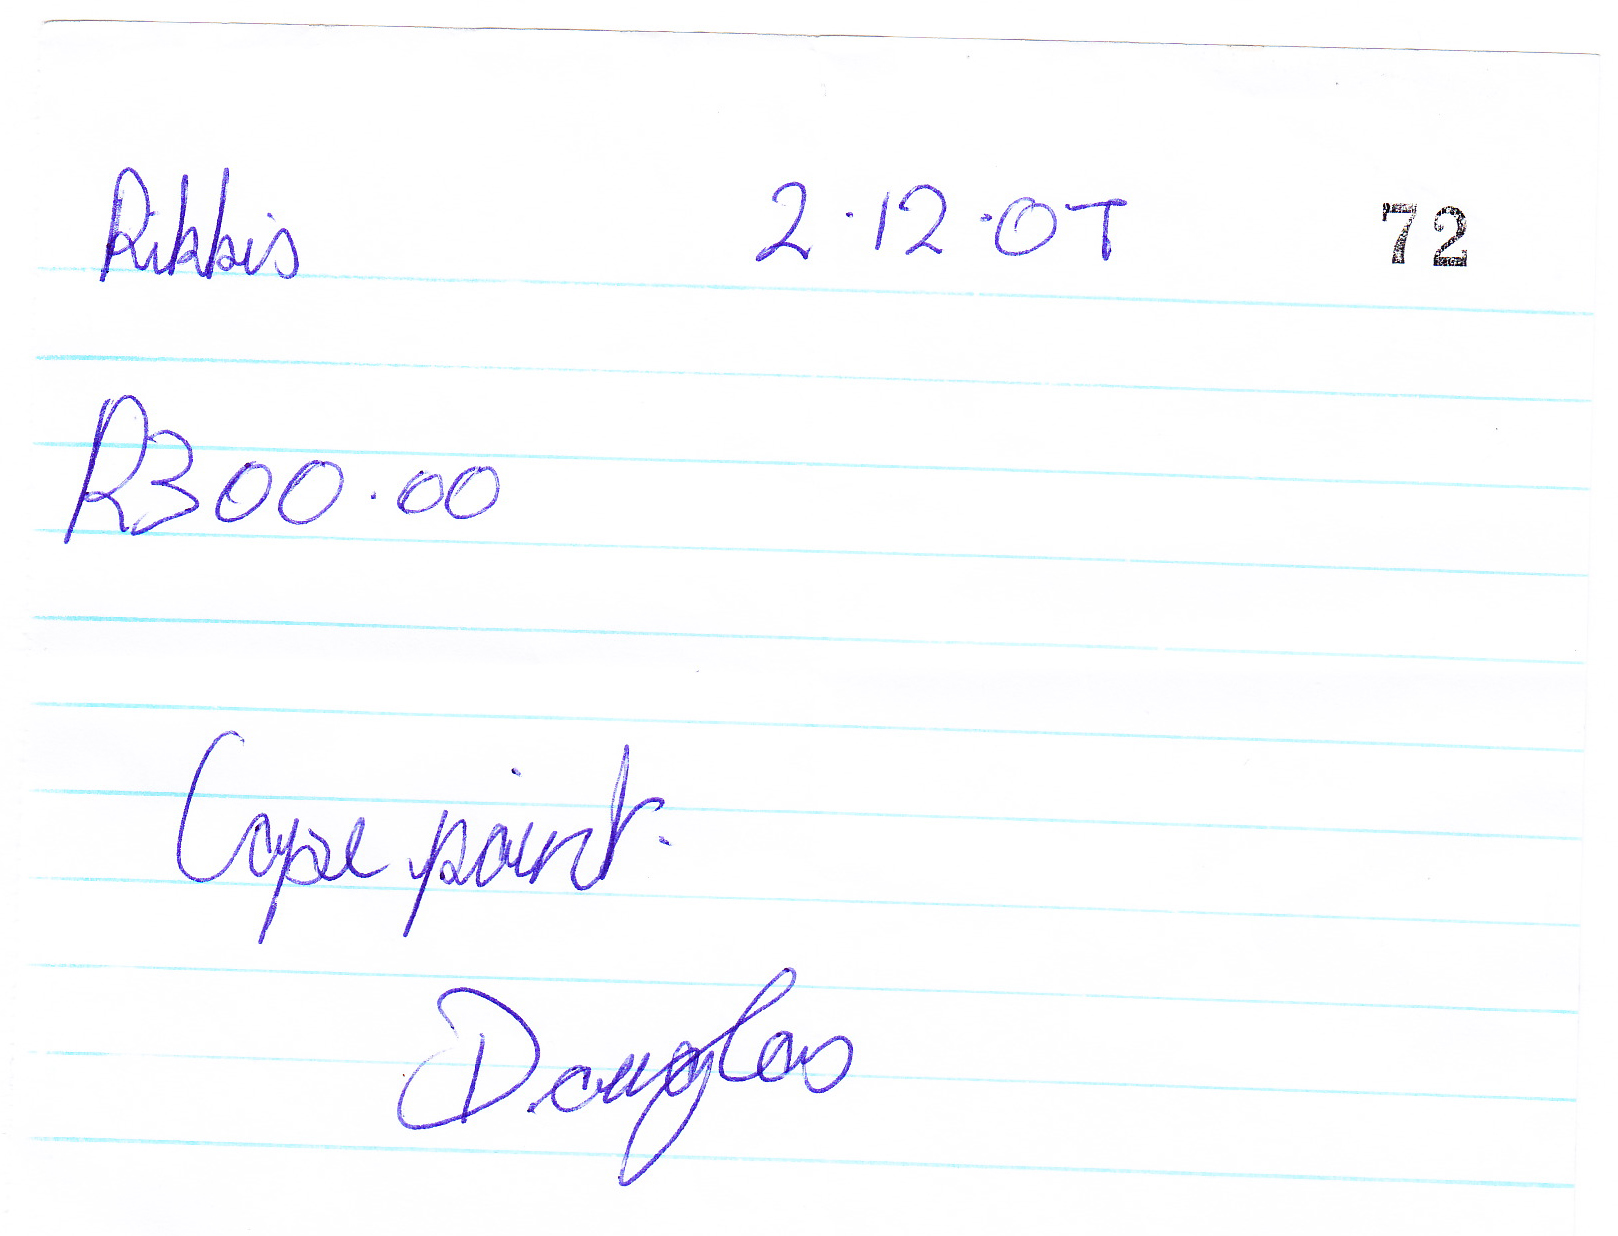 Rikkis 2.12.07 72
R300.00
Cape point.
Douglas